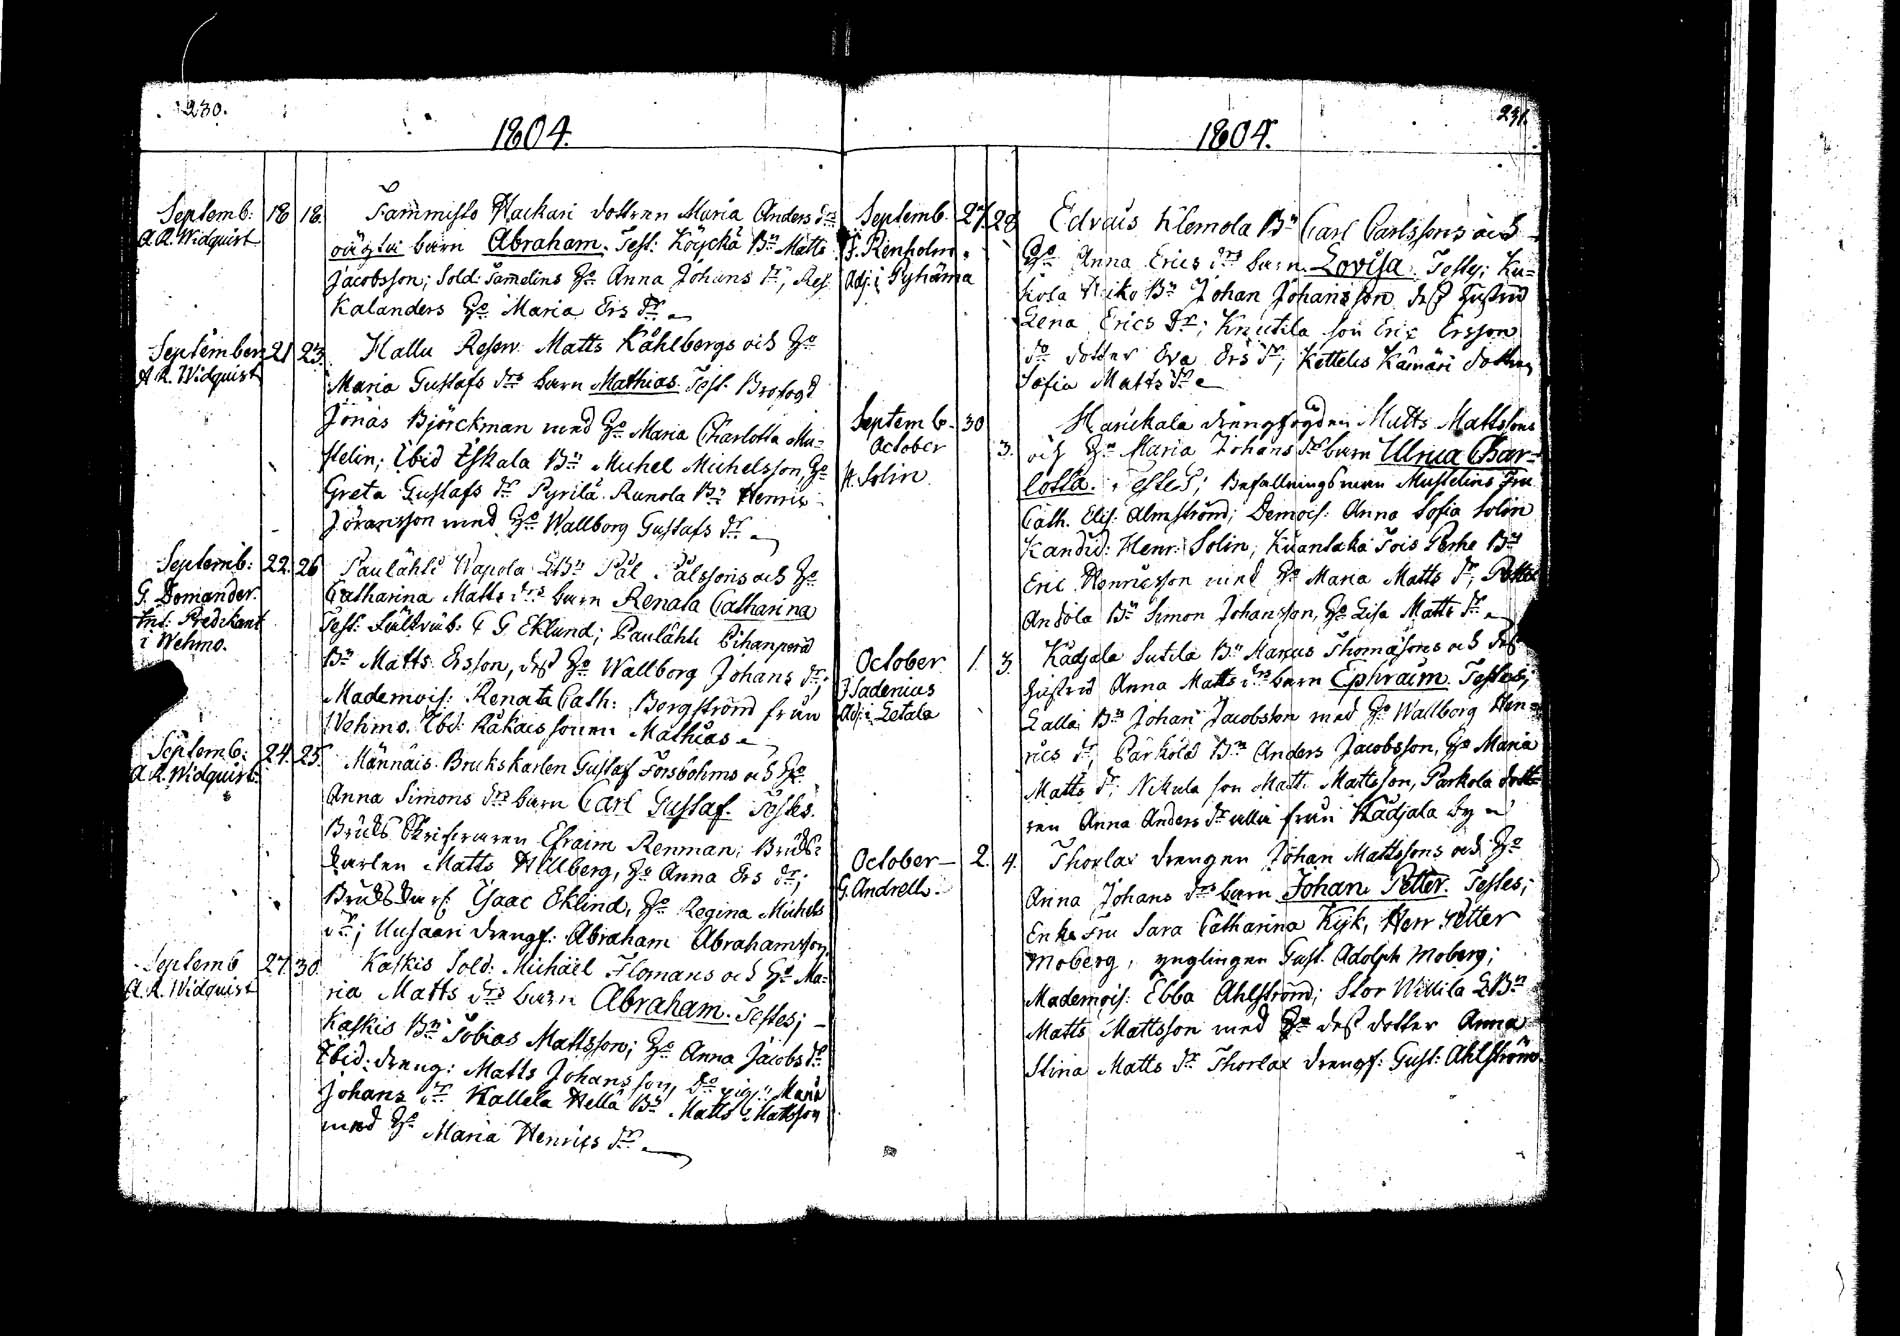 230.
1804.
Septemb: 18 18. Tammisto Haekari dottren Maria Anders drs
A. R. Widquist oägta barn Abraham. Test: Köyckä Bn Matts
Jacobsson; Sold: Samelins Ho Anna Johans dr, Res.
Kalanders Ho Maria Ers dr.
September 21 23. Hallu Reserv. Matts Kåhlbergs och Ho
A. R. Widquist Maria Gustafs drs barn Mathias. Test.
Jonas Björckman med Ho Maria Charlotta Mu-
stelin; Ibid Eskala Bn Michel Michelsson, Ho
Greta Gustafs dr Pyrilä Runola Bn Henric
Jöransson med Ho Wallborg Gustafs dr.
Septemb: 22. 26 Paulähti Wapola Bn Pål Pålssons och Ho
G. Domander. Catharina Matts drs barn Renata Catharina
Predikant Test: C G Eklund; Paulähti
i Wehmo. Bn Matts Ersson, dess Ho Wallborg Johans dr;
Mademois: Renata Cath: Bergström från
Wehmo. Ibd: Råkais sonen Mathias
Septemb: 24. 25. Männäis Brukskarlen Gustaf Forsbohms och Ho
A. R. Widquist. Anna Simons drs barn Carl Gustaf. Testes.
Bruks Skrifvaren Efraim Renman; Bruks-
karlen Matts Hillberg, Ho Anna Ers dr;
Bruks Karl: Ysaac Eklind, Ho Regina Michels
dr; Uusaari drengf: Abraham Abrahamsson
Septemb 27. 30. Kaskis Sold: Michäel Flomans och Ho Ma-
A. R. Widquist ria Matts drs barn Abraham. Testes;
Kaskis Bn Tobias Mattsson; Ho Anna Jacobs dr
Ibid: dreng: Matts Johansson, Do pig: Maria
Johans dr Kallela Hellä Bn Matts Mattsson
med Ho Maria Henrics dr
231.
1804.
Septemb. 27. 28 Edvais Klemola Bn Carl Carlssons och
F. Renholm Ho Anna Erics drs barn Lovisa. Testes; Ku-
Adj: i Pyhäma kola Heiko Bn Johan Johansson dess Hustru
Lena Erics dr; Knutila son Eric Ersson
do dotter Eva Ers dr; Kettelis Kämäri dottren
Sofia Matts dr
Septemb. 30 Hanckala drengfogden Matts Mattssons
October 3. och Ho Maria Johans drs barn Ulrica Char-
H. Solin lotta. Testes; Befallningsman Mustelins Fru
Cath. Elis: Almström; Demois: Anna Sofia Solin
Kandid: Henr: Solin, Kuanlaka Tois Perhe Bn
Eric Henricsson med Ho Maria Matts dr,
Andola Bn Simon Johansson, Ho Lisa Matts dr
October 1. 3. Kådjala Sutila Bn Marcus Thomassons och dess
J Sadenius hustru Anna Matts drs barn Ephraim. Testes;
Adj: i Letala Lalla Bn Johan Jacobsson med Ho Wallborg Hen-
rics dr, Parkola Bn Anders Jacobsson, Ho Maria
Matts dr, Nikula son Matt: Mattsson, Parkola dott-
ren Anna Anders dr alla från Kådjala by
October 2. 4. Thorlax drengen Johan Mattssons och Ho
G. Andrell. Anna Johans drs barn Johan Petter. Testes;
Enke Fru Sara Catharina Kijk, Herr Petter
Moberg, ynglingen Gust. Adolph Moberg;
Mademois: Ebba Ahlström; Stor Willila Bn
Matts Mattsson med Ho dess dotter Anna
Stina Matts dr Thorlax drengf: Gust: Ahlström